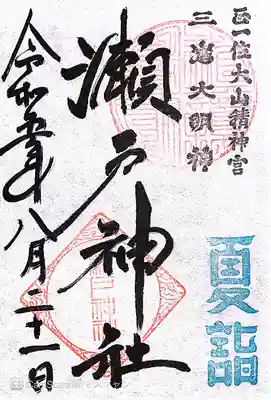 正一位大山積神宮
三嶌大明神
瀬戸神社
夏詣
令和五年八月二十一日
CS CamScanner